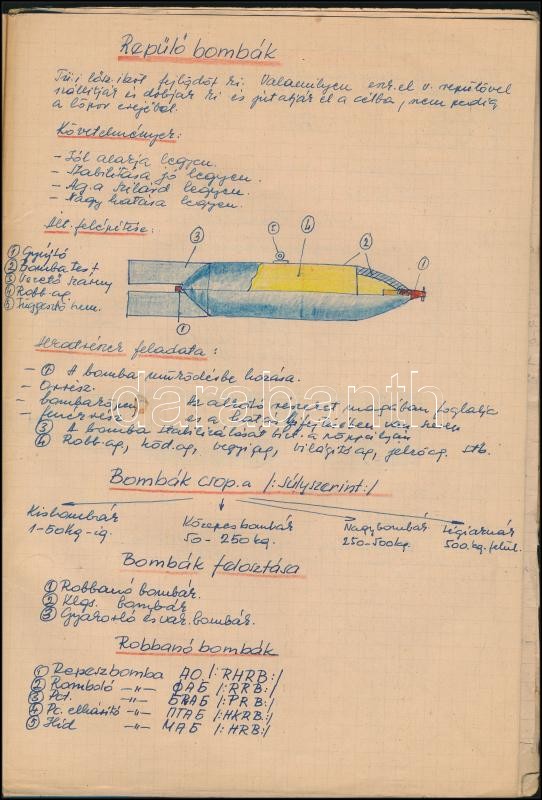 Repülő bombák
fejlődőt ki. Valamilyen v. repülővel
szállítják és dobják ki és jutatják el a célba, nem pedig
a lőpor erejéből.
Követelmények:
- Jól alakja legyen.
- Stabilitása jó legyen.
- Ag. a szilárd legyen.
- Nagy hatása legyen.
Ált. felépítése:
① Gyújtó
② Bomba test
③ Vezető szárny
④ Robb. ag.
⑤ Függesztő
③ ⑤ ④ ② ①
①
feladata:
- ① A bomba működésbe hozása.
- Orrész.
- bomba Az alkotó részeket magában foglalja
- fenékrész és a van szerepe
③ A bomba stabilizálását bizt. a röppályán
④ Robb. ag, köd. ag, vegyi ag, világító ag, jelző ag. Stb.
Bombák csop. a /: súlyszerint :/
Kisbombák
1-50 kg-ig.
Közepes bombák
50-250 kg.
Nagybombák
250-500 kg.
Légiaknák
500 kg. felül.
Bombák felosztása
① Robbanó bombák.
② Klgs. bombák
③ Gyakorló és vak. bombák.
Robbanó bombák
① Repeszbomba AO /: RHRB :/
② Romboló -"- ФАБ /: RRB :/
③ Pct. -"- БРАБ /: PRB :/
④ Pc. elhárító -"- ПТАБ /: HKRB :/
⑤ Híd -"- МАБ /: HRB :/
darabanth